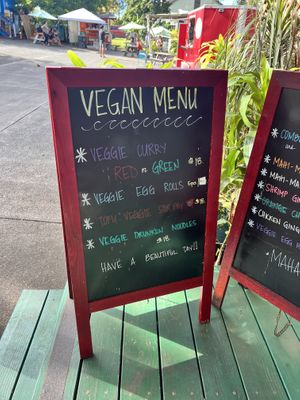 VEGAN MENU
* VEGGIE CURRY
RED or GREEN $18
* VEGGIE EGG ROLLS
* TOFU VEGGIE STIR FRY $18
* VEGGIE DRUNKEN NOODLES
$18
HAVE A BEAUTIFUL DAY!!
COMBO
are
* MAH-M
* MAH-M
* SHRIMP
* CHICKEN GING
* VEGGIE EGG
MAHA